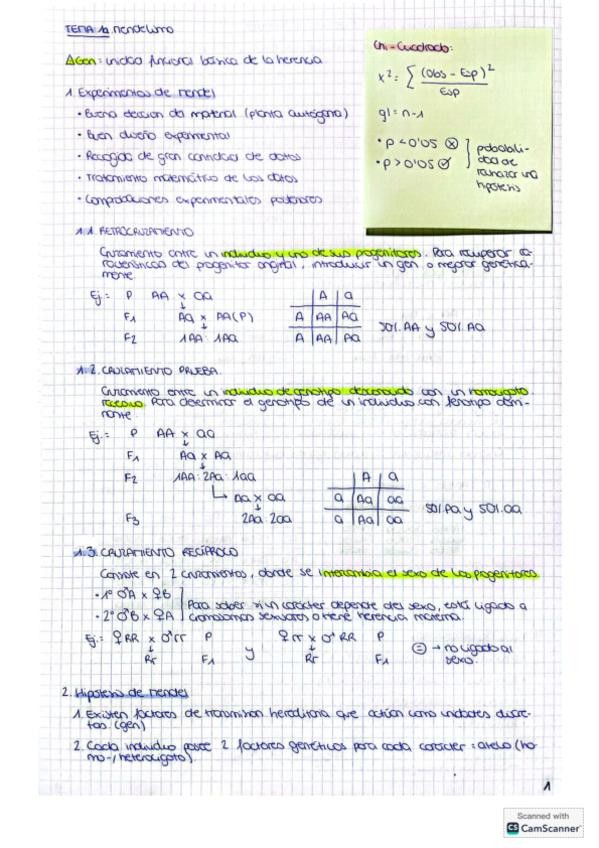 TEMA 1a. Mendelismo
ΔGen: unidad funcional básica de la herencia
1. Experimentos de Mendel
• Buena eleccion del material (planta autógama)
• Buen diseño experimental
• Recogida de gran cantidad de datos
• Tratamiento matemático de los datos
• Comprobaciones experimentales posteriores
Chi-Cuadrado:
x² = Σ (Obs - Esp)²
Esp
gl = n-1
• p < 0'05 ⊗
• p > 0'05
probabili-
dad de
rechazar una
hipótesis
1.1. RETROCRUZAMIENTO
Cruzamiento entre un individuo y uno de sus progenitores. Para recuperar ca-
racterísticas del progenitor original, introducir un gen o mejorar genética-
mente
Ej: P AA x aa
↓
F1 Aa x AA(P)
↓
F2 1AA : 1Aa
A a
A AA Aa
A AA Aa
50%. AA y 50%. Aa
1.2. CRUZAMIENTO PRUEBA.
Cruzamiento entre un individuo de genotipo desconocido con un homocigoto
recesivo. Para determinar el genotipo de un individuo con fenotipo domi-
nante
Ej: P AA x aa
↓
F1 Aa x Aa
↓
F2 1AA : 2Aa : 1aa
↳ Aa x aa
↓
F3 2Aa : 2aa
A a
a Aa aa
a Aa aa
50%. Aa y 50%. aa
1.3. CRUZAMIENTO RECÍPROCO
Consiste en 2 cruzamientos, donde se intercambia el sexo de los progenitores
• 1º ♂A x ♀B
• 2º ♂B x ♀A
Para saber si un carácter depende del sexo, está ligado a
cromosomas sexuales o tiene herencia materna.
Ej: ♀RR x ♂rr P y ♀rr x ♂RR P
↓ ↓
Rr F1 Rr F1
= → no ligado al
sexo.
2. Hipótesis de Mendel
1. Existen factores de transmisión hereditaria que actúan como unidades discre-
tas (gen)
2. Cada individuo posee 2 factores genéticos para cada carácter = alelo (ho-
mo-/heterocigoto)
1
Scanned with
CS CamScanner